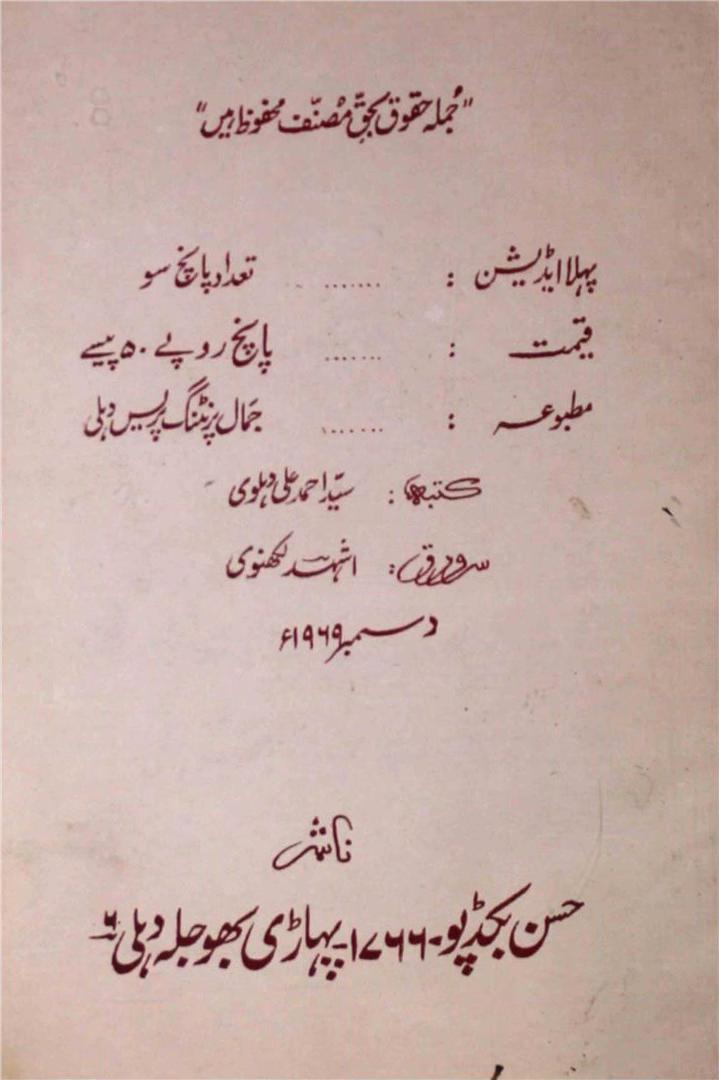 "جملہ حقوق بحقِّ مُصنّف محفوظ ہیں"
پہلا ایڈیشن : ....... تعداد پانچ سو
قیمت : ....... پانچ روپے ۵۰ پیسے
مطبوعہ : ....... جمال پرنٹنگ پریس دہلی
کتبہ : سیّد احمد علی دہلوی
سرورق : اشہد لکھنوی
دسمبر ۱۹۶۹ء
ناشر
حسن بکڈپو - ۱۷۶۶ - پہاڑی بھوجلہ دہلی ۶